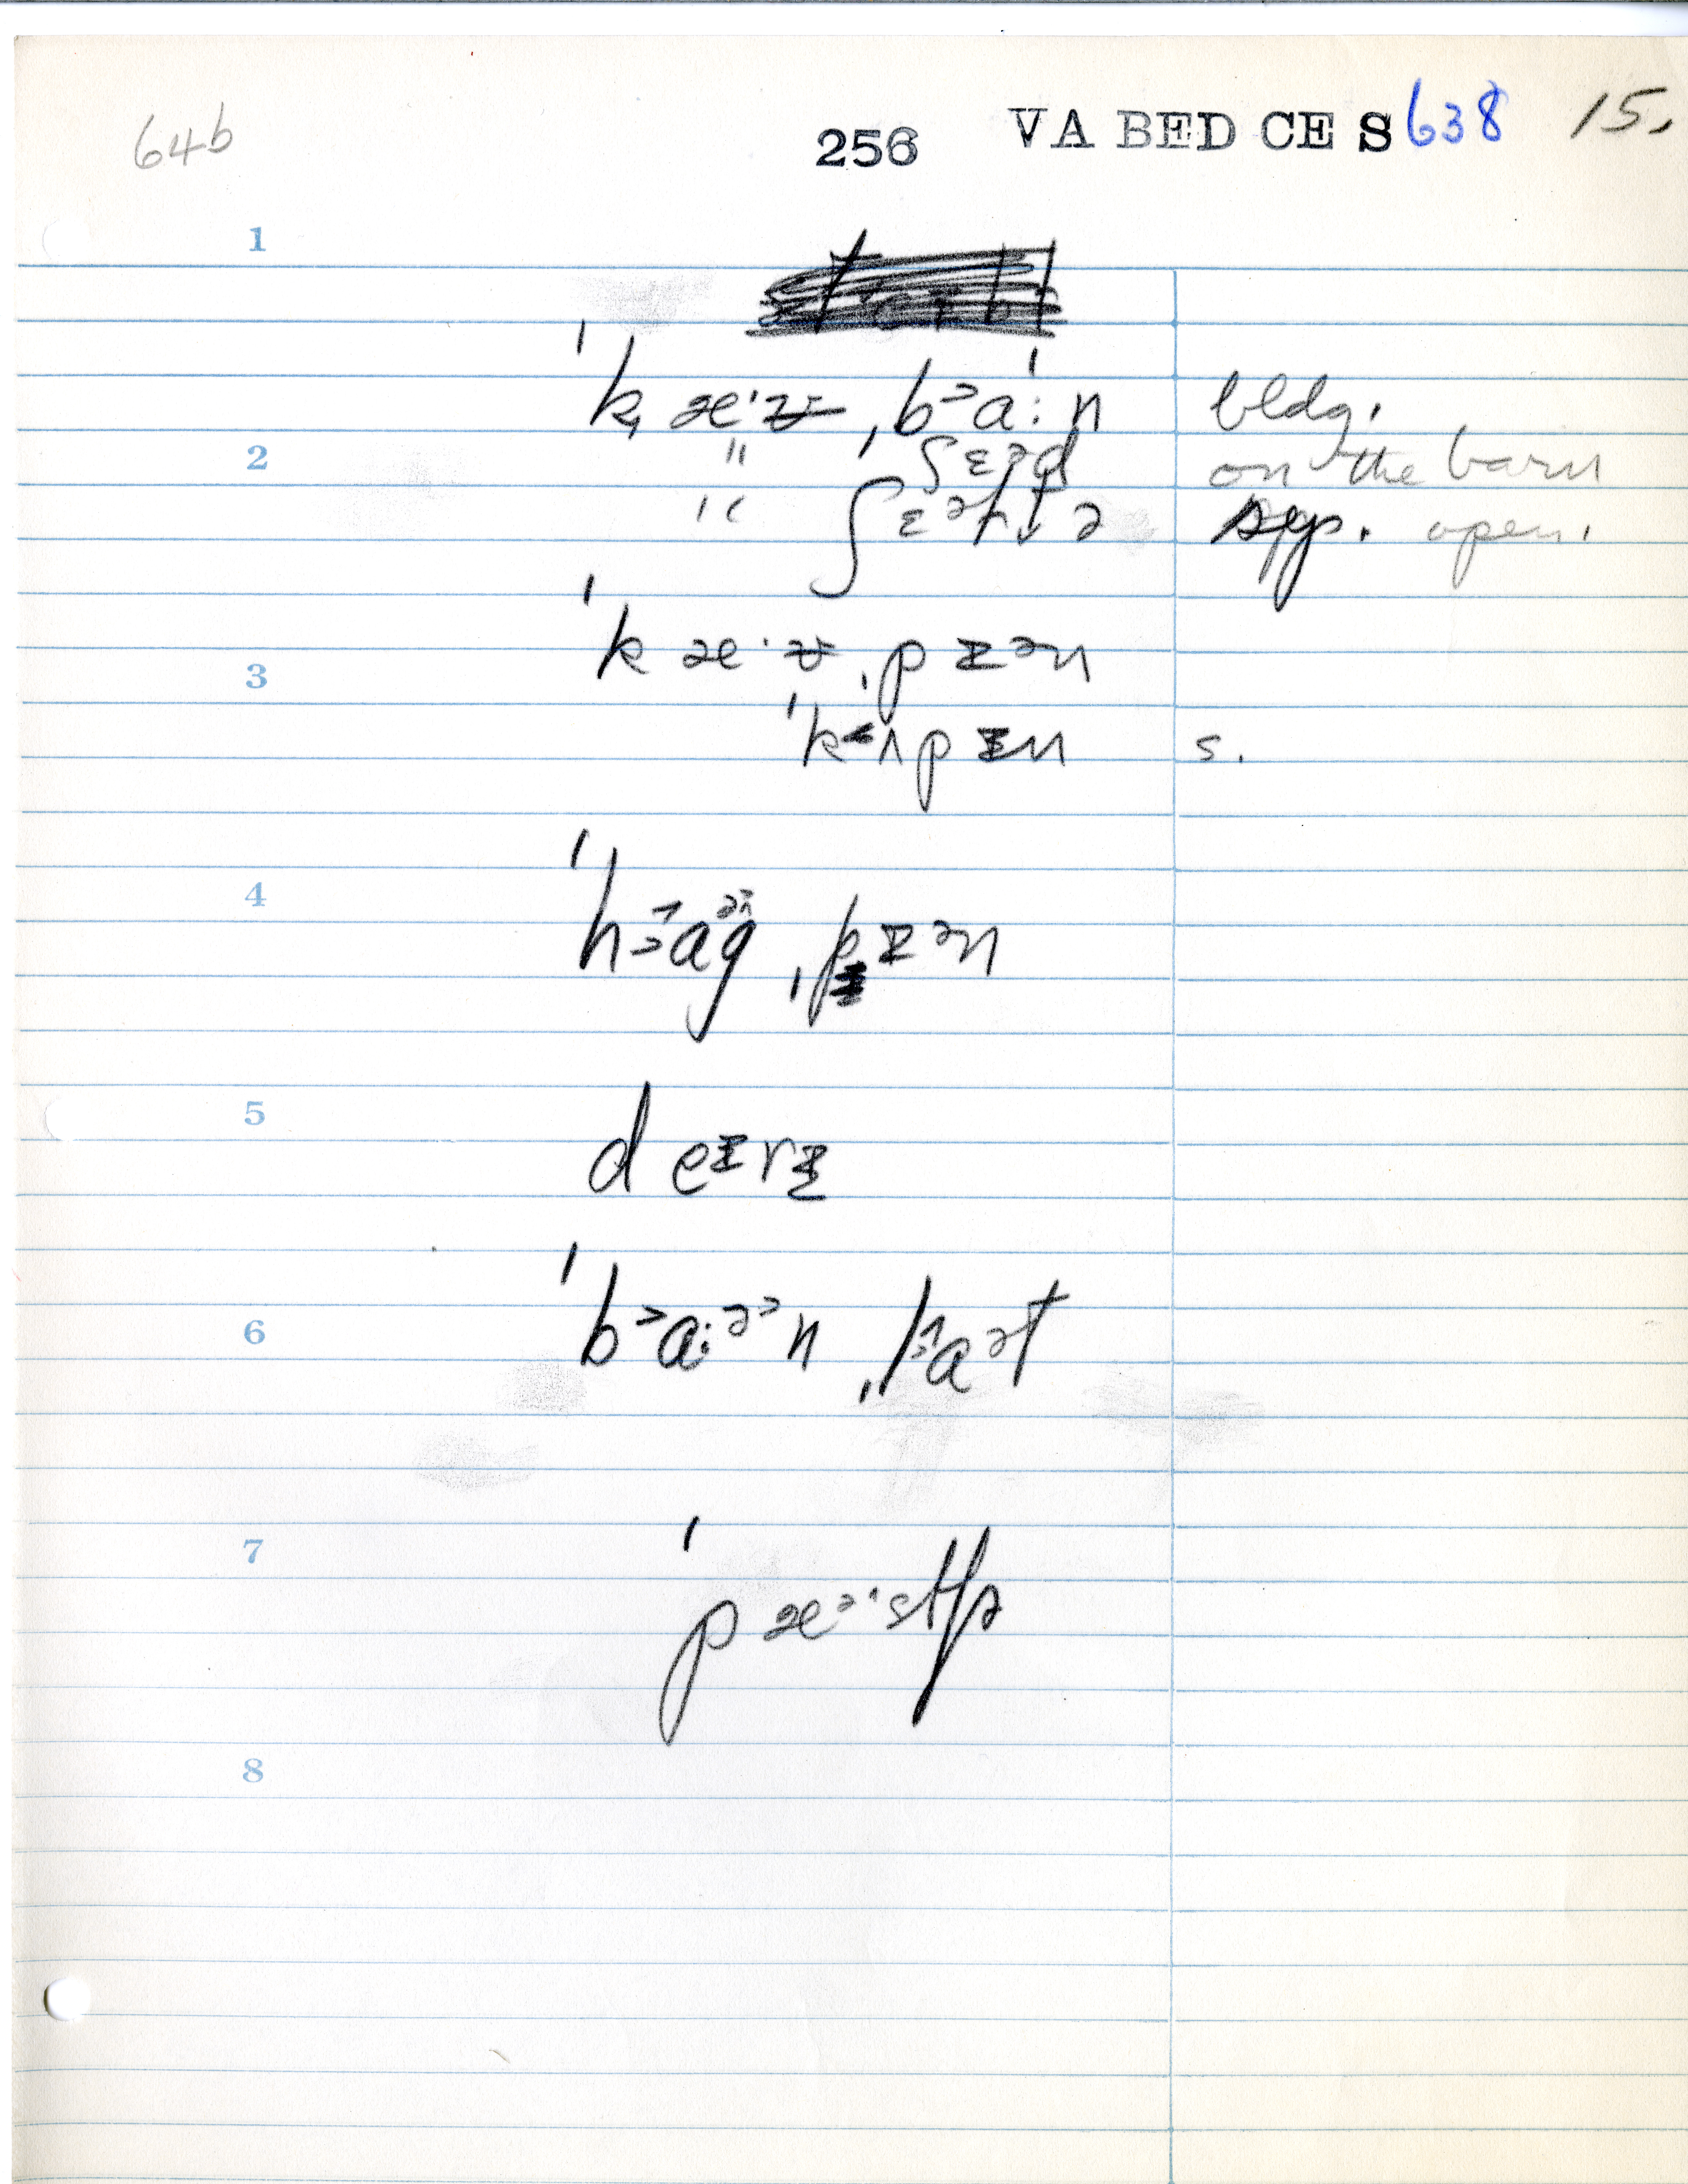 64b 256 VA BED CE S638 15.
1
ˈk̟ æ·v̵ ˌb˃a꞉n bldg.
2 " ˌʃɛᵊd on the barn
" ʃɛᵊɫtɚ sep. open.
ˈkæ·v̵ ˌpɪ̵ᵊn
3
ˈk˂ʌpɪ̵n s.
4 ˈh˃ag ˌpɪ̵ᵊn
5 deɪ̵rɪ̵
6 ˈb˃a꞉ᵊn ˌl˃aᵊt
7 ˈpæᵊ·stʃɚ
8